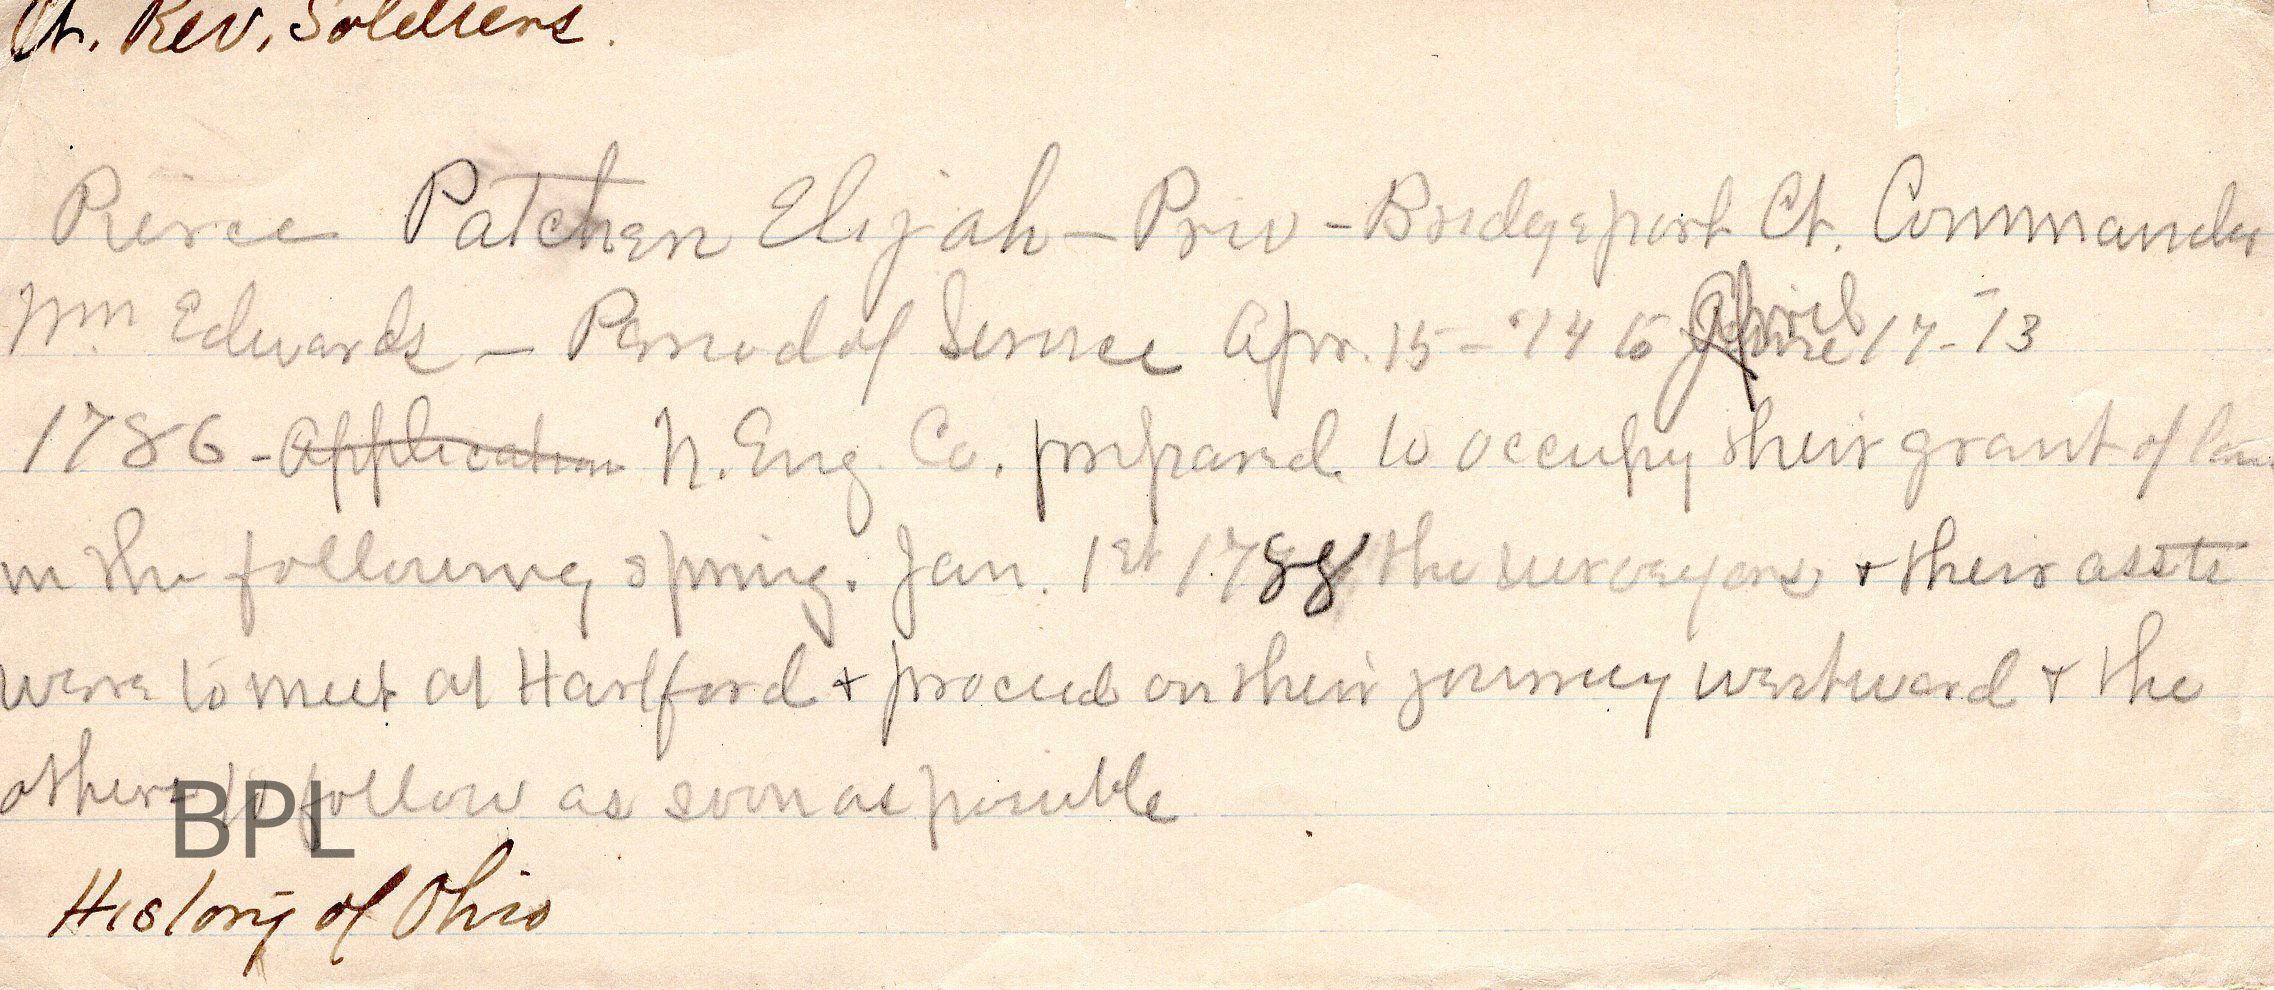 Ct. Rev. Soldiers.
Pierce Patchen Elijah - Priv - Bridgeport Ct. Commander
Wm Edwards - Period of Service Apr. 15 - '74 to April 17 - 73
1786 - Application N. Eng. Co. prepared to occupy their grant of
in the following spring. Jan. 1st 1788 the surveyors + their assts
were to meet at Hartford + proceed on their journey westward + the
others to follow as soon as possible
BPL
History of Ohio